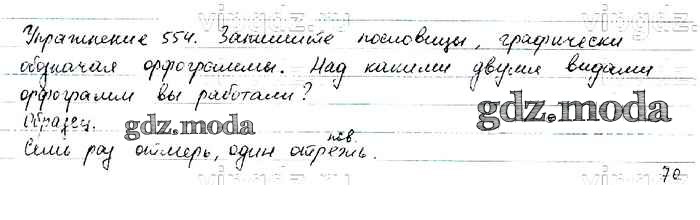 Упражнение 554. Запишите пословицы, графически
обозначая орфограммы. Над какими двумя видами
орфограмм вы работали?
Образец.
gdz.moda
gdz.moda
пов.
Семь раз отмерь, один отрежь.
70